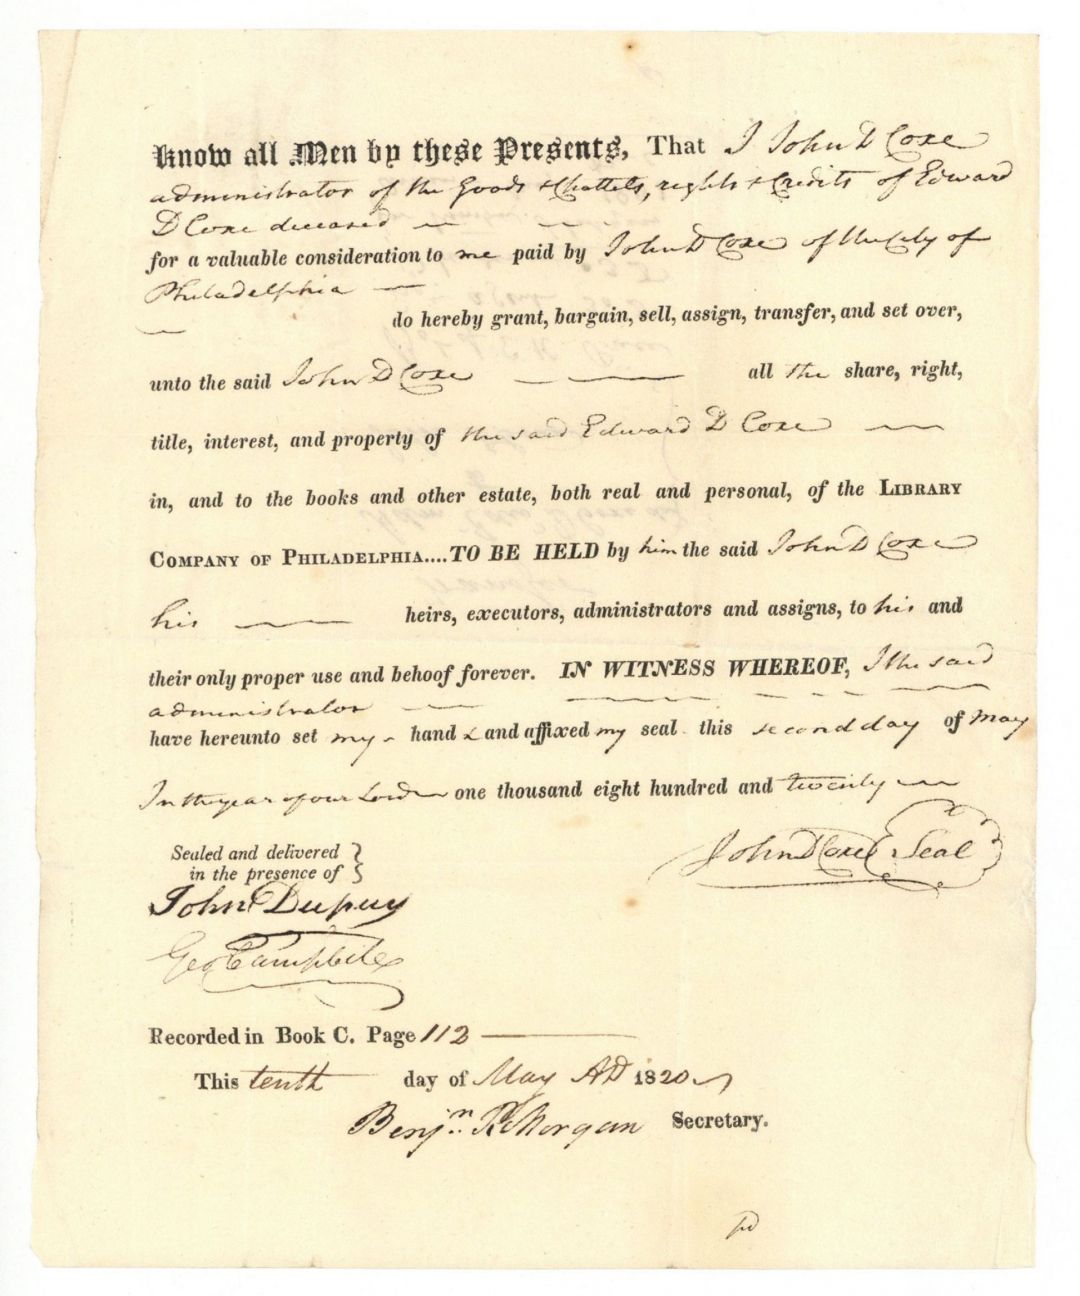 Know all Men by these Presents, That I John D Coxe
administrator of the Goods & Chattels, rights & Credits of Edward
D Coxe deceased
for a valuable consideration to me paid by John D Coxe of the City of
Philadelphia
do hereby grant, bargain, sell, assign, transfer, and set over,
unto the said John D Coxe all the share, right,
title, interest, and property of the said Edward D Coxe
in, and to the books and other estate, both real and personal, of the LIBRARY
COMPANY OF PHILADELPHIA....TO BE HELD by him the said John D Coxe
his heirs, executors, administrators and assigns, to his and
their only proper use and behoof forever. IN WITNESS WHEREOF, I the said
administrator
have hereunto set my hand & and affixed my seal this second day of May
In the year of our Lord one thousand eight hundred and twenty
Sealed and delivered
in the presence of
John D Coxe Seal
John Dupuy
Geo Campbell
Recorded in Book C. Page 112
This tenth day of May AD 1820
Benjn. R Morgan Secretary.